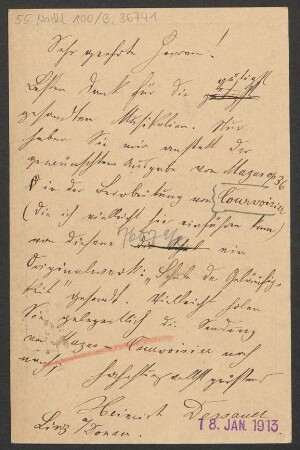 55 Nachl 100/B, 36741
Sehr geehrte Herren!
Besten Dank für die gütigst
gesandten Musikalien. Nur
haben Sie mir anstatt der
gewünschten Ausgabe von Mazas op 36
in der Bearbeitung von Courvoisier
(die ich vielleicht hier einführen kann)
von diesem ein
Originalwerk: „Schule der Geläufig-
keit" gesandt. Vielleicht holen
Sie gelegentlich die Sendung
von Mazas-Courvoisier noch
nach.
Hochachtungsvollst grüssend
Heinrich Dessauer
Linz a/Donau.
18. JAN. 1913